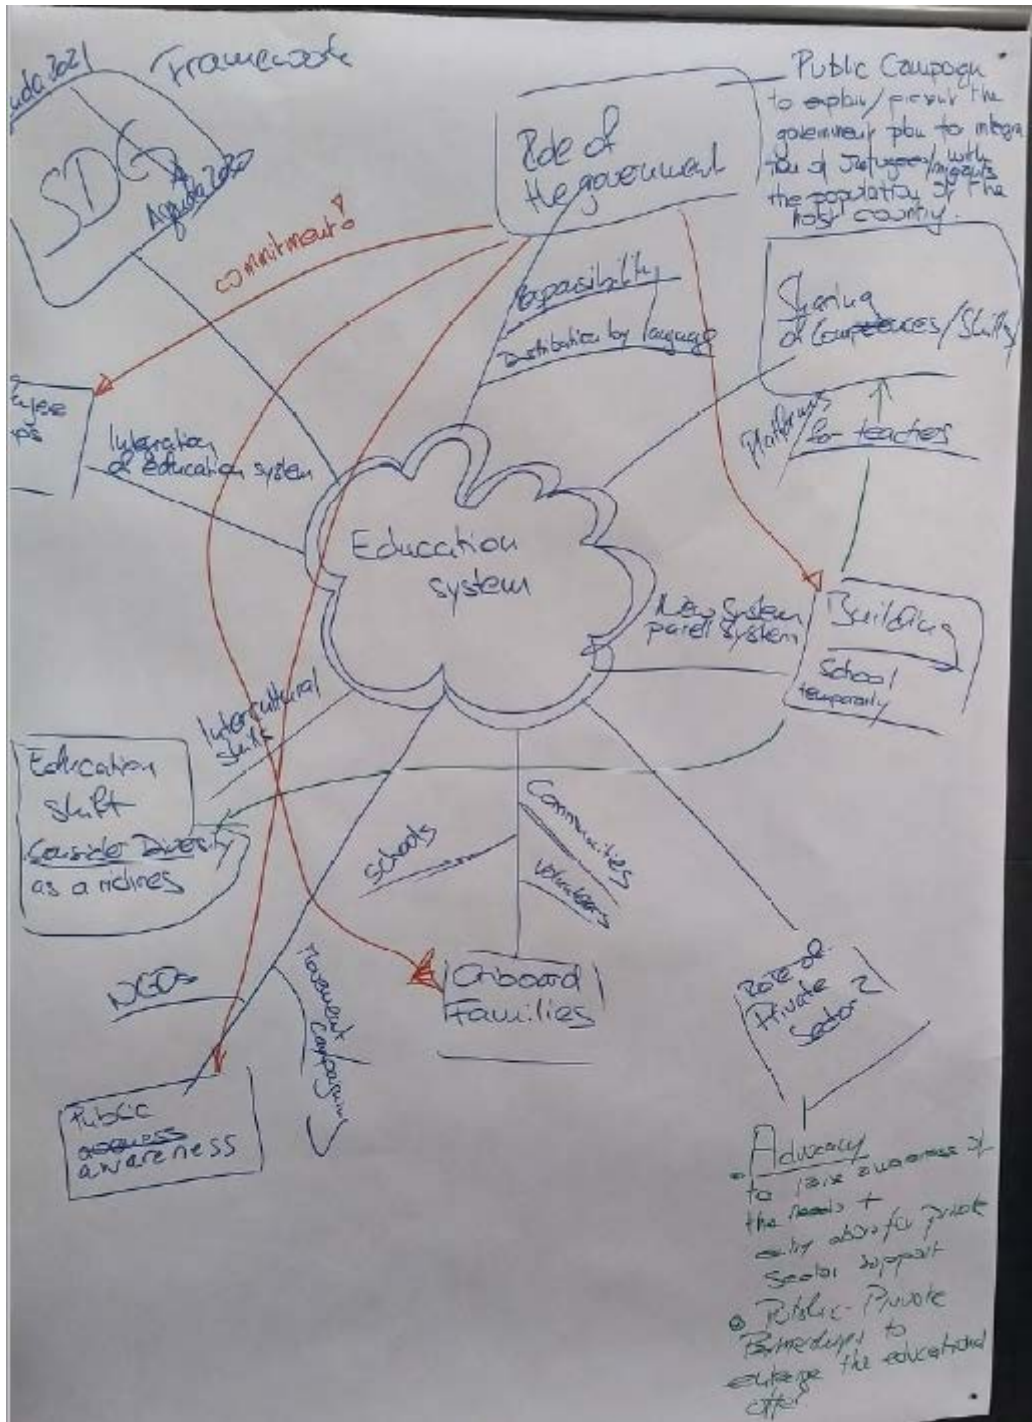 Framework
Agenda 2030
Role of
the government
Public Campaign
to explain/present the
government plan to integra
tion of Refugees/migrants with
the population of the
host country.
commitment!
Responsibility
Distribution by language
Sharing
of Competences/Skills
Platforms
for teachers
Integration
of education system
Education
system
New System
parell system
Building
School
temporarily
Intercultural
skills
Education
shift
Consider Diversity
as a
Schools
Communities
Volunteers
NGOs
Movement
Campaigns
Onboard
Families
Role of
Private
Sector?
Public
awareness
Advocacy
to raise awareness of
the needs +
entry for private
sector support
Public-Private
Partnerships to
the educational
offer